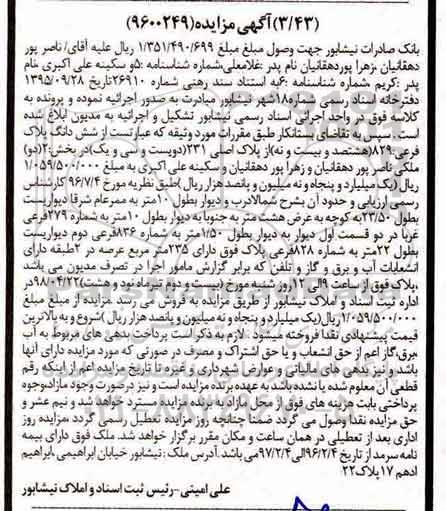 (۳/۴۳) آگهی مزایده (۹۶۰۰۲۴۹)
بانک صادرات نیشابور جهت وصول مبلغ مبلغ ۱/۳۵۱/۴۹۰/۶۹۹ ریال علیه آقای/ ناصر پور
دهقانیان ،زهرا پوردهقانیان نام پدر :غلامعلی،شماره شناسنامه :۵و سکینه علی اکبری ،نام
پدر :کریم ،شماره شناسنامه :۶به استناد سند رهنی شماره ۲۶۹۱۰تاریخ ۱۳۹۵/۰۹/۲۸
دفترخانه اسناد رسمی شماره۱۸شهر نیشابور مبادرت به صدور اجرائیه نموده و پرونده به
کلاسه فوق در واحد اجرائی اسناد رسمی نیشابور تشکیل و اجرائیه به مدیون ابلاغ شده
است . سپس به تقاضای بستانکار طبق مقررات مورد وثیقه که عبارتست از شش دانگ پلاک
فرعی۸۲۹(هشتصد و بیست و نه)از پلاک اصلی ۲۳۱(دویست و سی و یک)در بخش:۲(دو)
ملکی ناصر پور دهقانیان و زهرا پور دهقانیان و سکینه علی اکبری به مبلغ ۱/۰۵۹/۵۰۰/۰۰۰
ریال (یک میلیارد و پنجاه و نه میلیون و پانصد هزار ریال )طبق نظریه مورخ ۹۶/۷/۴ کارشناس
رسمی ارزیابی و حدود آن بشرح شمالادرب و دیوار بطول ۱۰متر به ممرعام شرقا دیواریست
بطول ۲۳/۵۰به کوچه به عرض هشت متر به جنوبا به دیوار بطول ۱۰متر به شماره ۲۷۹فرعی
غربا در دو قسمت اول دیوار به دیوار بطول ۱/۵۰متر به شماره ۸۳۶فرعی دوم دیواریست
بطول ۲۲متر به شماره ۸۲۸فرعی پلاک فوق دارای ۲۳۵متر مربع عرصه در ۲طبقه دارای
انشعابات آب و برق و گاز و تلفن که برابر گزارش مامور اجرا در تصرف مدیون می باشد
،پلاک فوق از ساعت ۹الی ۱۲روز شنبه مورخ (بیست و دوم تیرماه نود و هشت)۹۸/۰۴/۲۲در
اداره ثبت اسناد و املاک نیشابور از طریق مزایده به فروش می رسد .مزایده از مبلغ مبلغ
۱/۰۵۹/۵۰۰/۰۰۰ریال(یک میلیارد و پنجاه و نه میلیون و پانصد هزار ریال )شروع و به بالاترین
قیمت پیشنهادی نقدا فروخته میشود . لازم به ذکر است پرداخت بدهی های مربوط به آب
،برق،گاز اعم از حق انشعاب و یا حق اشتراک و مصرف در صورتی که مورد مزایده دارای آنها
باشد و نیز بدهی های مالیاتی و عوارض شهرداری و غیره تا تاریخ مزایده اعم از اینکه رقم
قطعی آن معلوم شده یا نشده باشد به عهده برنده مزایده است و نیز درصورت وجود مازادوجوه
پرداختی بابت هزینه های فوق از محل مازاد به برنده مزایده مسترد خواهد شد و نیم عشر و
حق مزایده نقدا وصول می گردد ضمنا چنانچه روز مزایده تعطیل رسمی گردد ،مزایده روز
اداری بعد از تعطیلی در همان ساعت و مکان مقرر برگزار خواهد شد. ملک فوق دارای بیمه
نامه سرمد از تاریخ ۹۶/۲/۴الی۹۷/۲/۴می باشد .آدرس ملک : نیشابور خیابان ابراهیمی ،ابراهیم
ادهم ۱۷پلاک۲۲
علی امینی-رئیس ثبت اسناد و املاک نیشابور